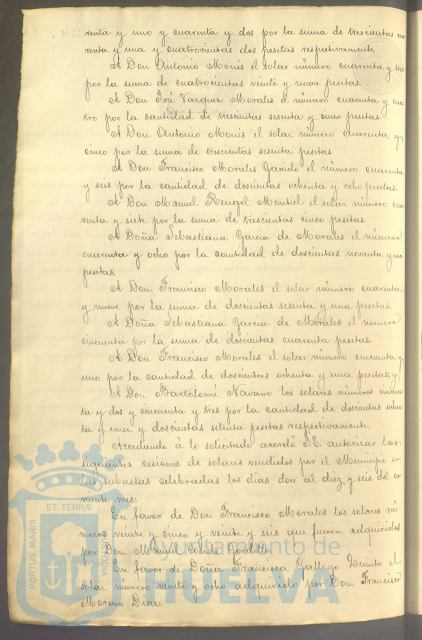 renta y uno y cuarenta y dos por la suma de trescientas cua
renta y una y cuatrocientas dos pesetas respectivamente.
A Don Antonio Monís el solar número cuarenta y tres
por la suma de cuatrocientas veinte y nueve pesetas.
A Don José Vazquez Morales el número cuarenta y cua
tro por la cantidad de trescientas sesenta y cinco pesetas.
A Don Antonio Monís el solar número cuarenta y
cinco por la suma de trescientas sesenta pesetas.
A Don Francisco Morales Garrido el número cuarenta
y seis por la cantidad de doscientas ochenta y ocho pesetas.
A Don Manuel Rengel Montiel el solar número cua
renta y siete por la suma de trescientas cinco pesetas.
A Doña Sebastiana Garcia de Morales el número
cuarenta y ocho por la cantidad de doscientas noventa y una
pesetas
A Don Francisco Morales el solar número cuarenta
y nueve por la suma de doscientas sesenta y una pesetas.
A Doña Sebastiana Garcia de Morales el número
cincuenta por la suma de doscientas cuarenta pesetas.
A Don Francisco Morales el solar número cincuenta y
uno por la cantidad de doscientas ochenta y una pesetas, y
A Don Bartolomé Navarro los solares números cincuen
ta y dos y cincuenta y tres por la cantidad de doscientas ochen
ta y una y doscientas setenta pesetas respectivamente.
Accediendo á lo solicitado acordó S.E. autorizar las
siguientes cesiones de solares vendidos por el Municipio en
las subastas celebradas los dias doce al diez y seis del co
rriente mes:
En favor de Don Francisco Morales los solares nú
meros veinte y cinco y veinte y seis que fueron adquiridos
por Don Manuel Gordillo.
En favor de Doña Francisca Gallego el
solar número veinte y ocho adquirido por Don Francisco
Moreno Diaz.
ET TERRAE
PORTUS MARIS
Ayuntamiento de
HUELVA